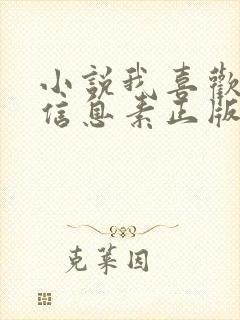 小說我喜歡
信息素正版
克萊因